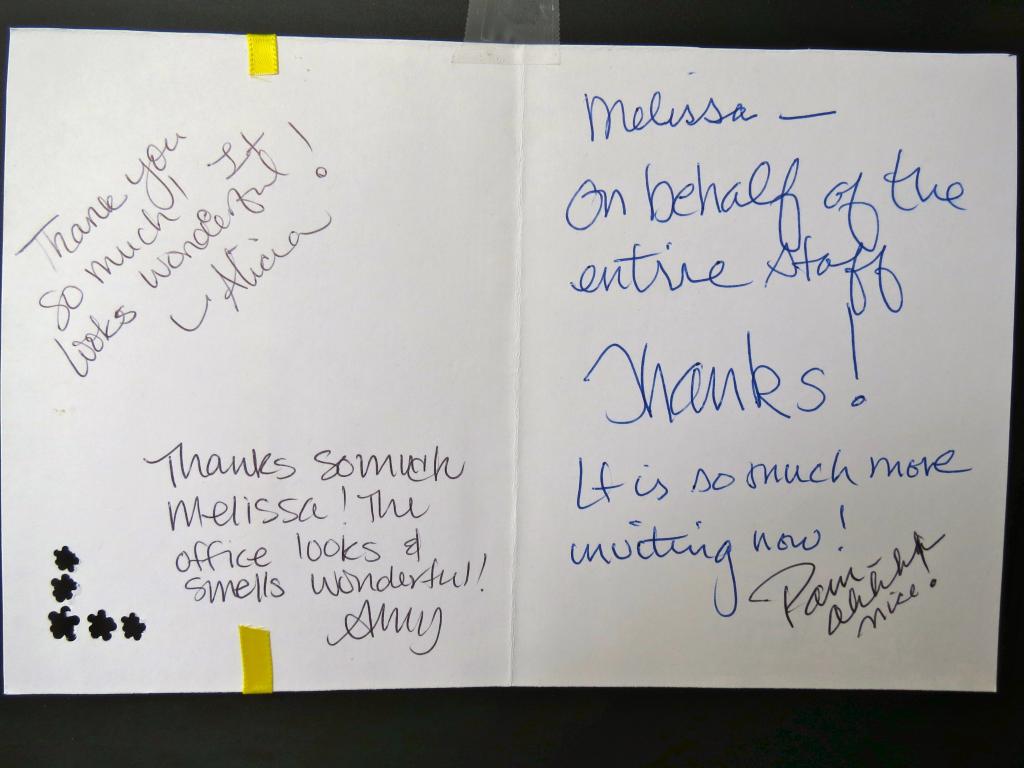 Thank you
so much! It
looks wonderful!
- Alicia
Thanks so much
Melissa! The
office looks &
smells wonderful!
Amy
Melissa —
On behalf of the
entire staff
Thanks!
It is so much more
inviting now!
Pam -
nice!